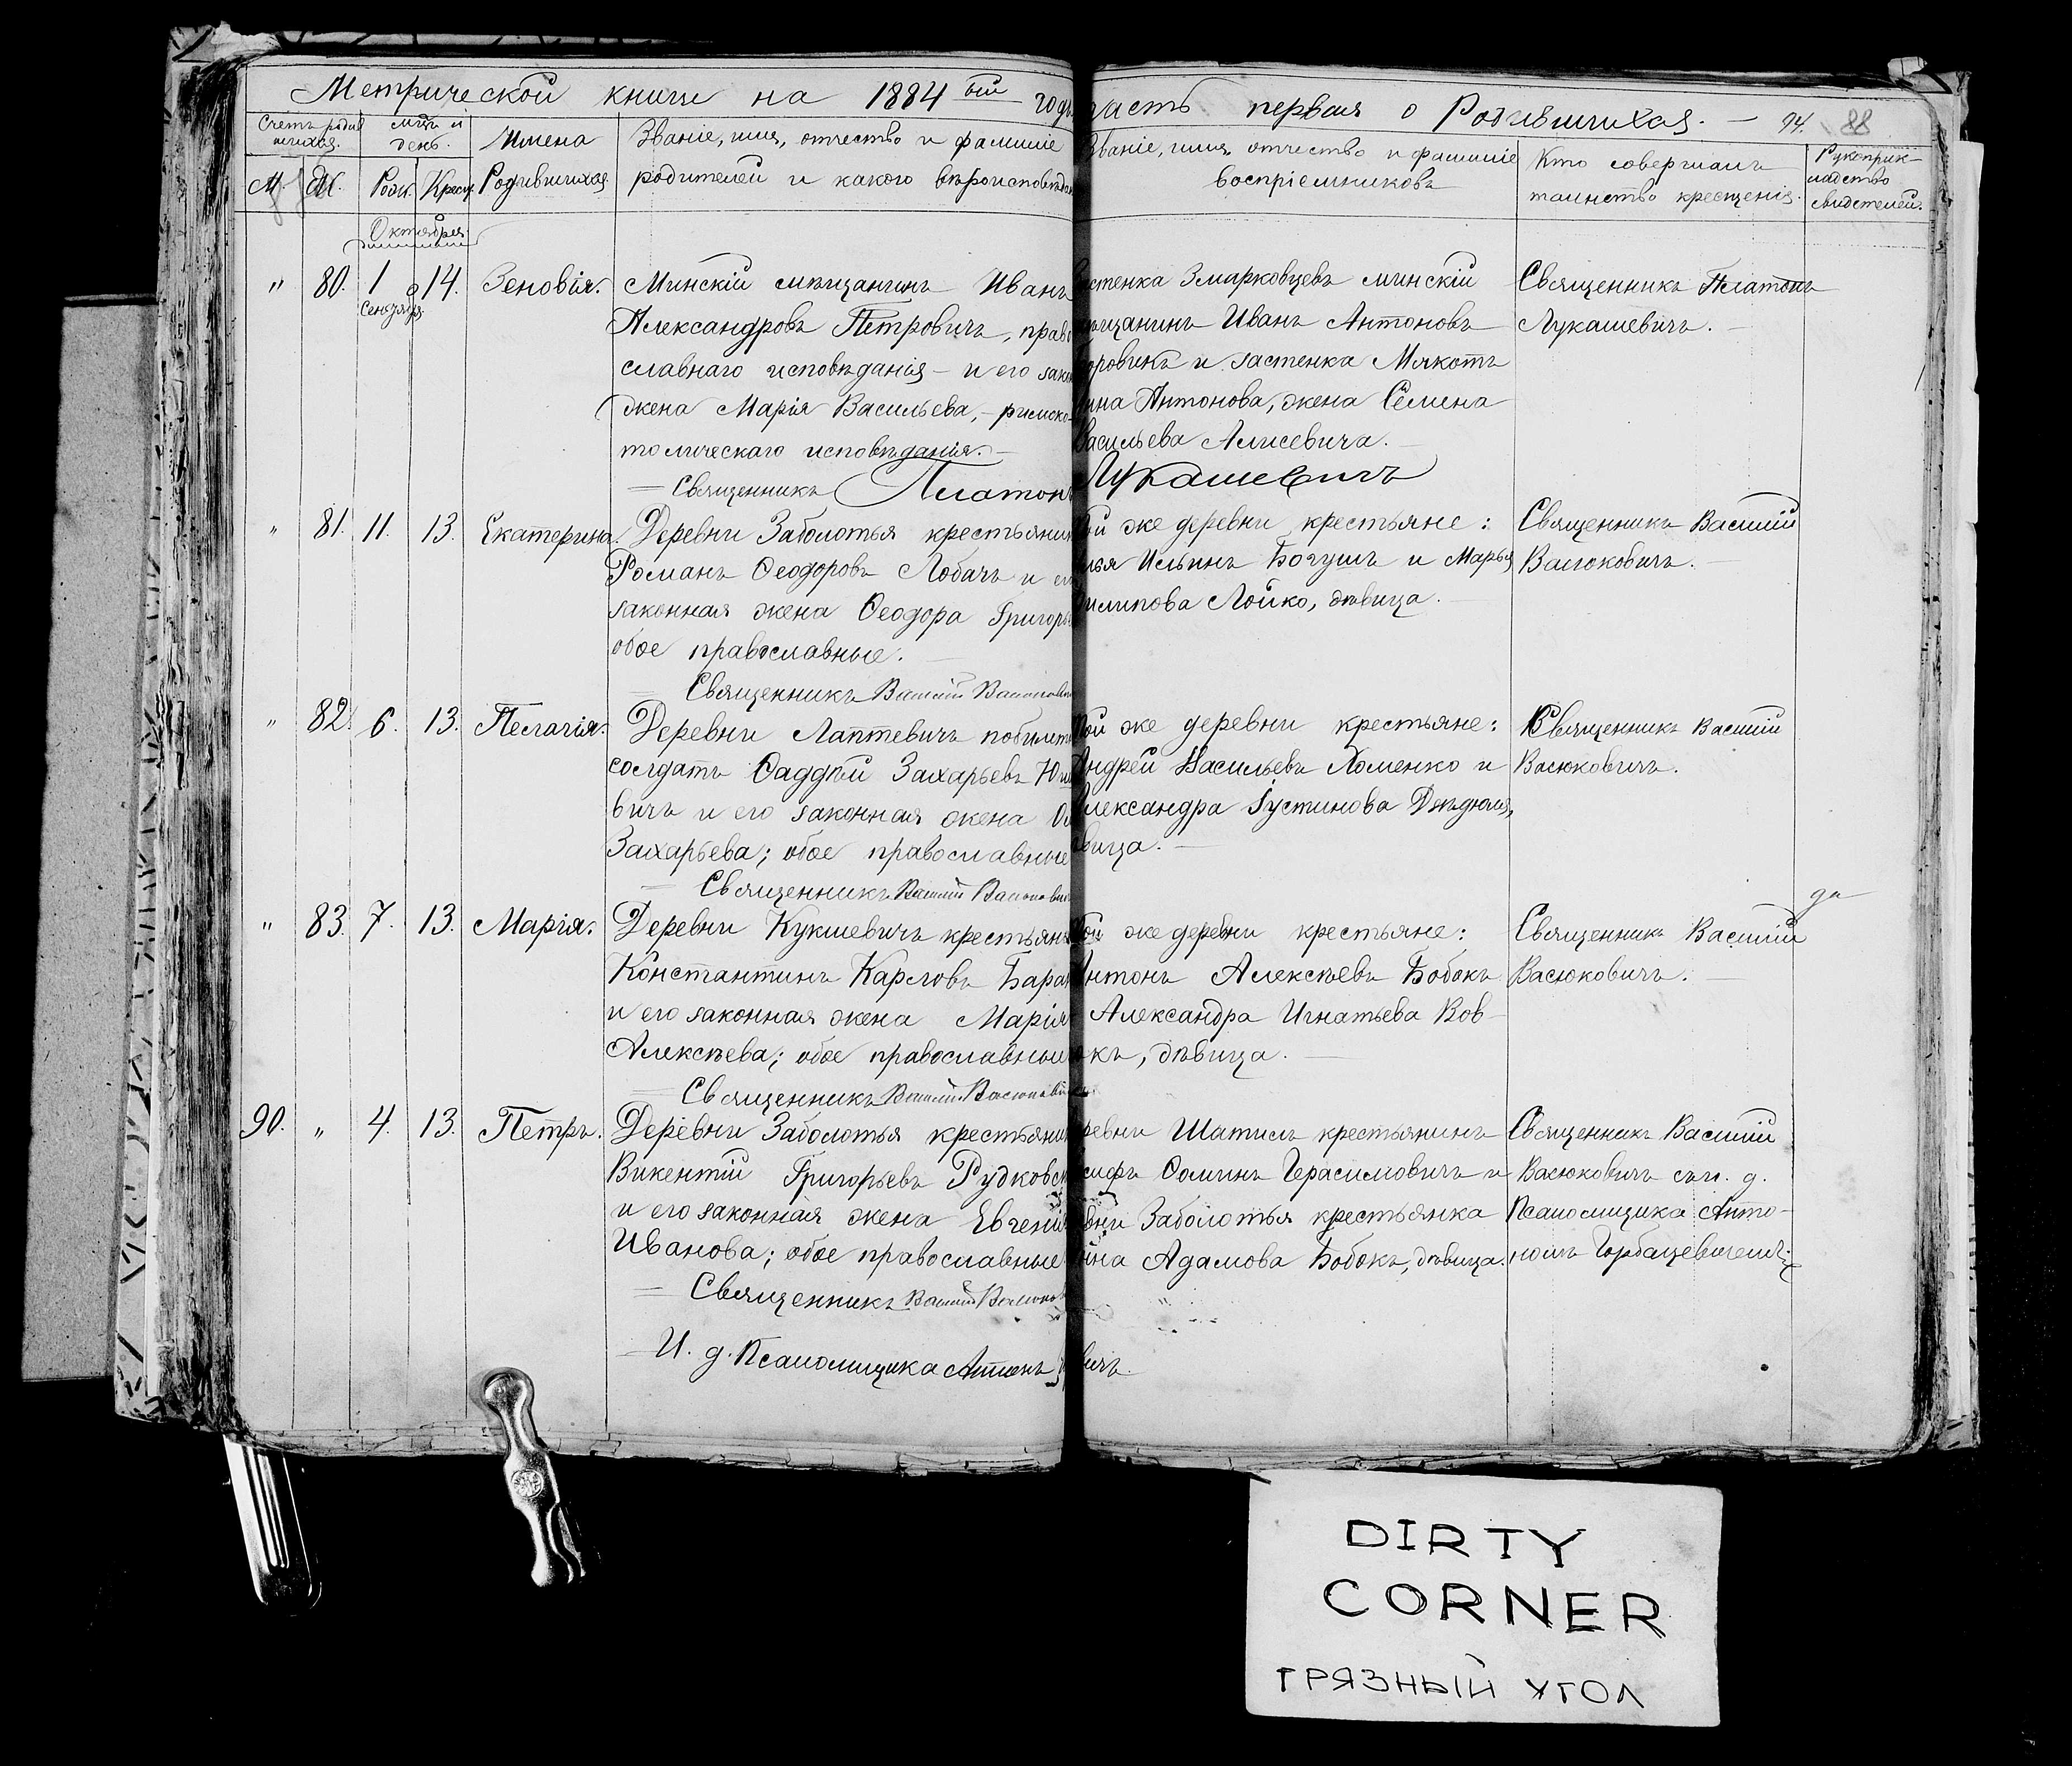 Метрической книги на 1884 ый годъ
часть первая о Родившихся. — 94. 88
Счетъ родив
шихся.
мцъ и
день.
Имена
Родившихся
Званіе, имя, отчество и фамилія
родителей и какого вѣроисповѣдан
М. Ж.
Рожд. Крещ.
Званіе, имя, отчество и фамилія
воспріемниковъ
Кто совершалъ
таинство крещенія.
Рукоприк-
ладство
свидетелей.
Октября
" 80. 1 14. Зеновія.
Сентября
Минскій мѣщанинъ Иванъ
Александровъ Петровичъ, право
славнаго исповѣданія – и его зако
жена Марія Васильева, – римско
толическаго исповѣданія. –
Священникъ Платонъ
Лукашевичъ
стенка Змарковцевъ минскій
щанинъ Иванъ Антоновъ
оровикъ и застенка Мякотъ
ина Антонова, жена Семена
Васильева Алисевича.
Священникъ Платонъ
Лукашевичъ.
" 81. 11. 13. Екатерина.
Деревни Заболотья крестьянин
Романъ Ѳеодоровъ Лобачъ и ег
законная жена Ѳеодора Григорь
обое православные.
Священникъ Василій Васюкови
той же деревни крестьяне:
Илья Ильинъ Богушъ и Марья
Филипова Лойко, дѣвица.
Священникъ Василій
Васюковичъ.
" 82. 6. 13. Пелагія.
Деревни Лаптевичъ побилетн
солдатъ Ѳаддей Захарьевъ Юш
вичъ и его законная жена
Захарьева; обое православные
Священникъ Василій Васюкови
той же деревни крестьяне:
Андрей Васильевъ Хоменко и
Александра Іустинова Дѣдюля,
вица.
Священникъ Василій
Васюковичъ.
" 83. 7. 13. Марія.
Деревни Кукшевичъ крестьян
Константинъ Карловъ Баран
и его законная жена Марія
Алексѣева; обое православные
Священникъ Василій Васюкович
той же деревни крестьяне:
Антонъ Алексѣевъ Бобокъ
Александра Игнатьева Вов-
окъ, дѣвица.
Священникъ Василій
Васюковичъ.
90. " 4. 13. Петръ.
Деревни Заболотья крестьянин
Викентій Григорьевъ Рудковск
и его законная жена Евгенія
Иванова; обое православные
Священникъ Василій Васюков
И. д. Псаломщика Антонъ
вичъ.
ревни Шатилъ крестьянинъ
сифъ Ѳоминъ Герасимовичъ и
вни Заболотья крестьянка
нна Адамова Бобокъ, дѣвица.
Священникъ Василій
Васюковичъ съ и. д.
Псаломщика Анто-
номъ Горбацевичемъ.
DIRTY
CORNER
ГРЯЗНЫЙ УГОЛ